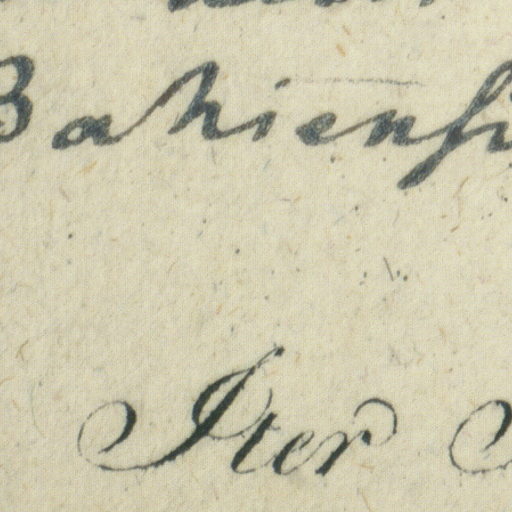 Bahiensi
Iter